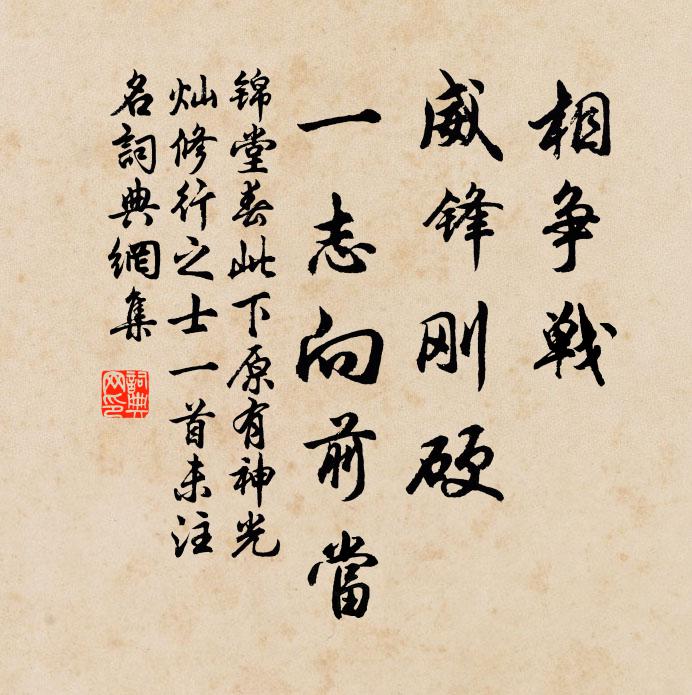 相争戰
威锋刚硬
一志向前當
锦堂春此下原有神光
灿修行之士一首未注
名詞典網集
詞典
网印